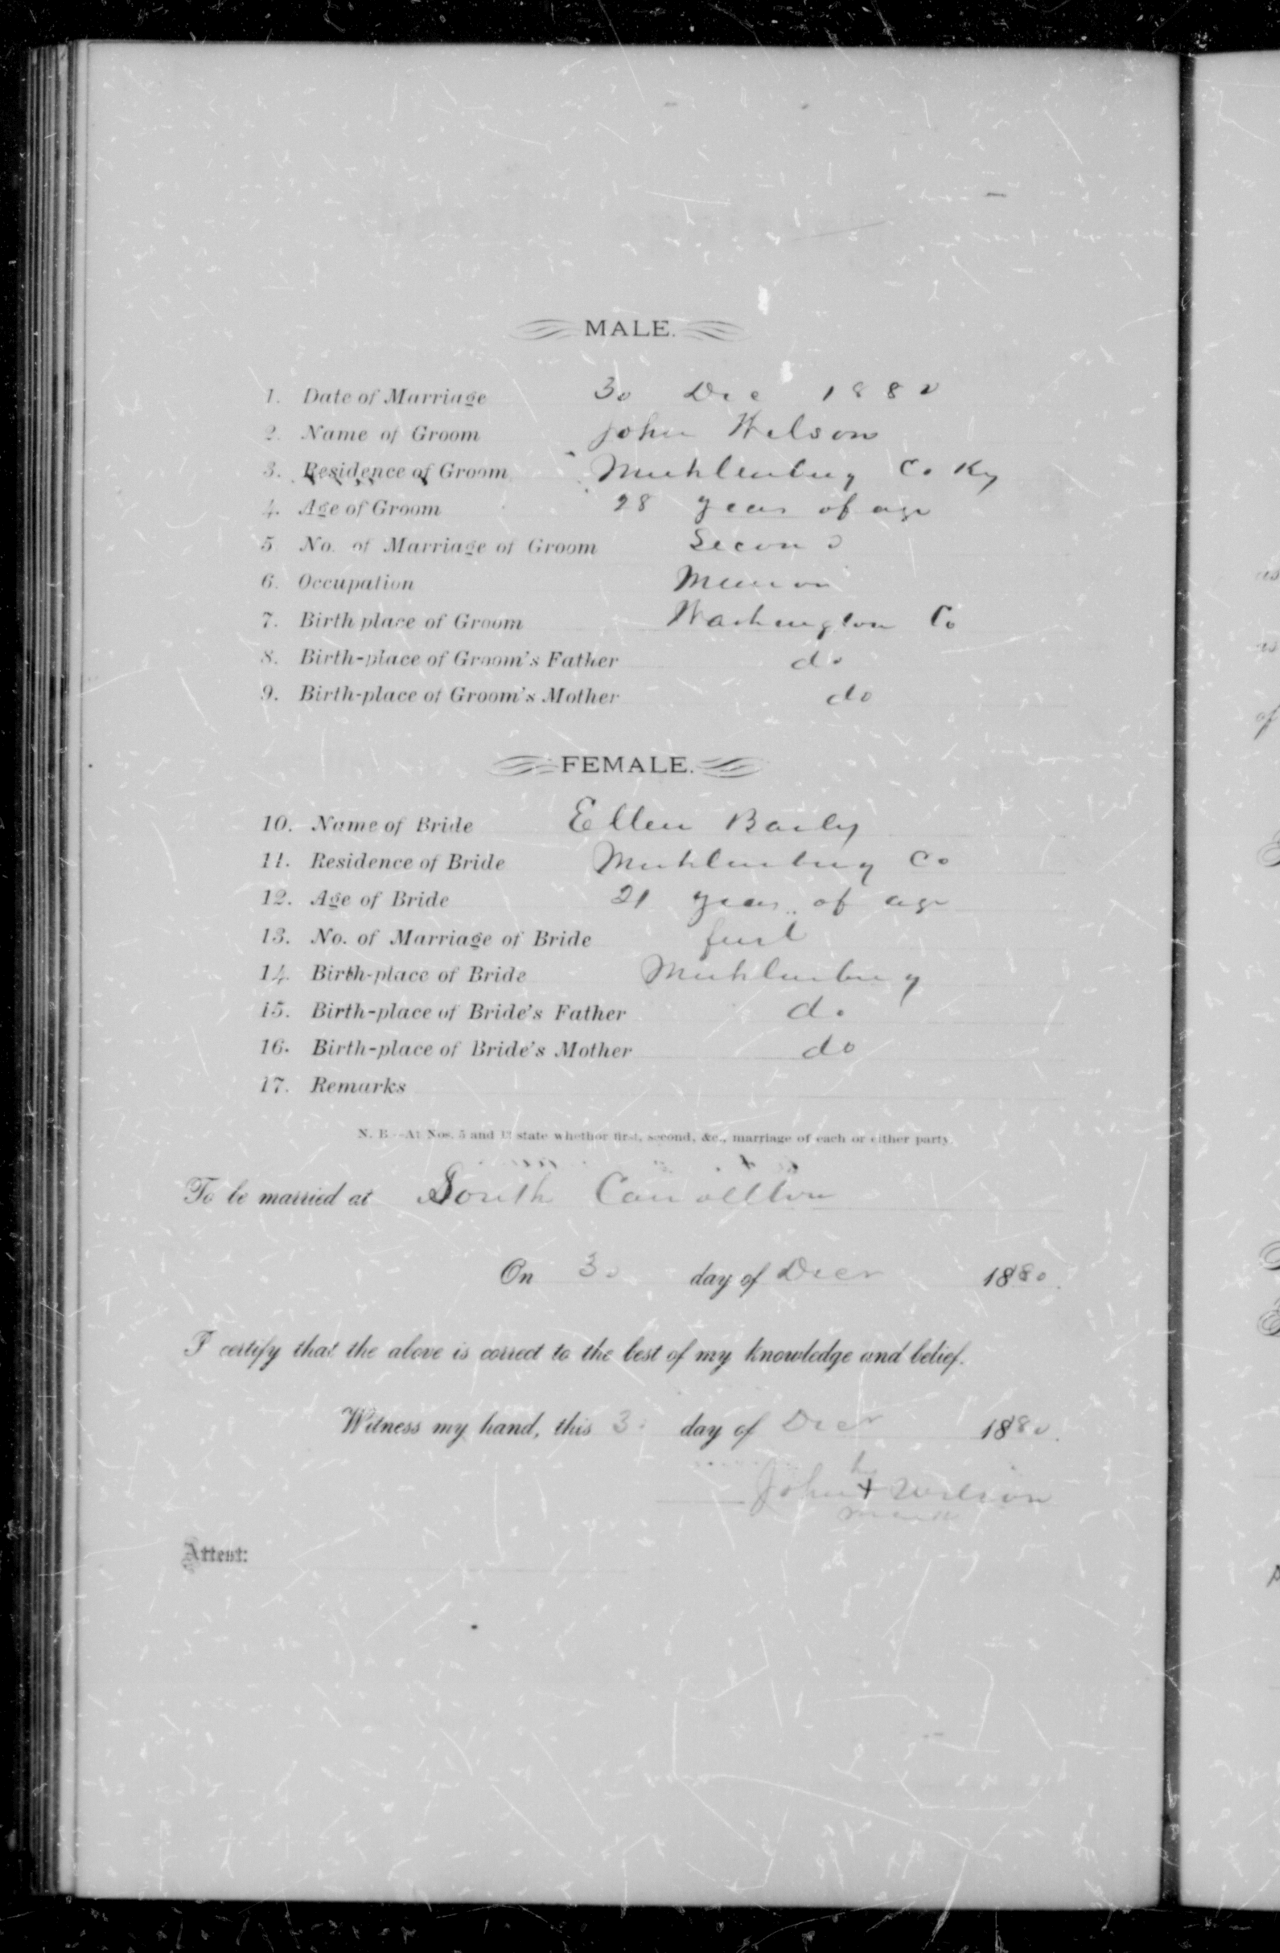 MALE.
1. Date of Marriage 30 Dec 1880
2. Name of Groom John Wilson
3. Residence of Groom Muhlenburg Co Ky
4. Age of Groom 28 years of age
5 No. of Marriage of Groom Second
6. Occupation
7. Birth place of Groom Washington Co
8. Birth-place of Groom's Father do
9. Birth-place of Groom's Mother do
FEMALE.
10. Name of Bride Ellen Baily
11. Residence of Bride Muhlenburg Co
12. Age of Bride 21 years of age
13. No. of Marriage of Bride first
14. Birth-place of Bride Muhlenburg
15. Birth-place of Bride's Father do
16. Birth-place of Bride's Mother do
17. Remarks
N. B.--At Nos. 5 and 13 state whether first, second, &c., marriage of each or either party.
To be married at South Carrollton
On 30 day of Decr 1880.
I certify that the above is correct to the best of my knowledge and belief.
Witness my hand, this 30 day of Decr 1880.
John + Wilson
mark
Attest: